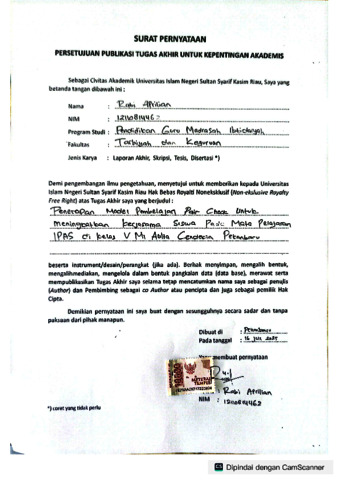 SURAT PERNYATAAN
PERSETUJUAN PUBLIKASI TUGAS AKHIR UNTUK KEPENTINGAN AKADEMIS
Sebagai Civitas Akademik Universitas Islam Negeri Sultan Syarif Kasim Riau, Saya yang
betanda tangan dibawah ini :
Nama : Robi Afrilian
NIM :
Program Studi : Pendidikan Guru Madrasah Ibtidaiyah
Fakultas : Tarbiyah dan Keguruan
Jenis Karya : Laporan Akhir, Skripsi, Tesis, Disertasi *)
Demi pengembangan ilmu pengetahuan, menyetujui untuk memberikan kepada Universitas
Islam Negeri Sultan Syarif Kasim Riau Hak Bebas Royalti Noneksklusif (Non-exclusive Royalty
Free Right) atas Tugas Akhir saya yang berjudul :
Penerapan Model Pembelajaran Pair Check Untuk
meningkatkan kerjasama Siswa Pada Mata Pelajaran
IPAS di kelas V Mi Cendekia Pekanbaru
beserta instrument/desain/perangkat (jika ada). Berhak menyimpan, mengalih bentuk,
mengalihmediakan, mengelola dalam bentuk pangkalan data (data base), merawat serta
mempublikasikan Tugas Akhir saya selama tetap mencatumkan nama saya sebagai penulis
(Author) dan Pembimbing sebagai co Author atau pencipta dan juga sebagai pemilik Hak
Cipta.
Demikian pernyataan ini saya buat dengan sesungguhnya secara sadar dan tanpa
paksaan dari pihak manapun.
Dibuat di : Pekanbaru
Pada tanggal : 16
membuat pernyataan
10000
METERAI
TEMPEL
Robi Afrilian
NIM :
*) corat yang tidak perlu
CS Dipindai dengan CamScanner